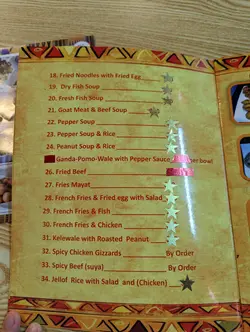 18. Fried Noodles with Fried Egg
19. Dry Fish Soup
20. Fresh Fish Soup
21. Goat Meat & Beef Soup
22. Pepper Soup
23. Pepper Soup & Rice
24. Peanut Soup & Rice
Ganda-Pomo-Wale with Pepper Sauce per bowl
26. Fried Beef
27. Fries Mayat
28. French Fries & Fried egg with Salad
29. French Fries & Fish
30. French Fries & Chicken
31. Kelewale with Roasted Peanut
32. Spicy Chicken Gizzards By Order
33. Spicy Beef (suya) By Order
34. Jellof Rice with Salad and (Chicken)